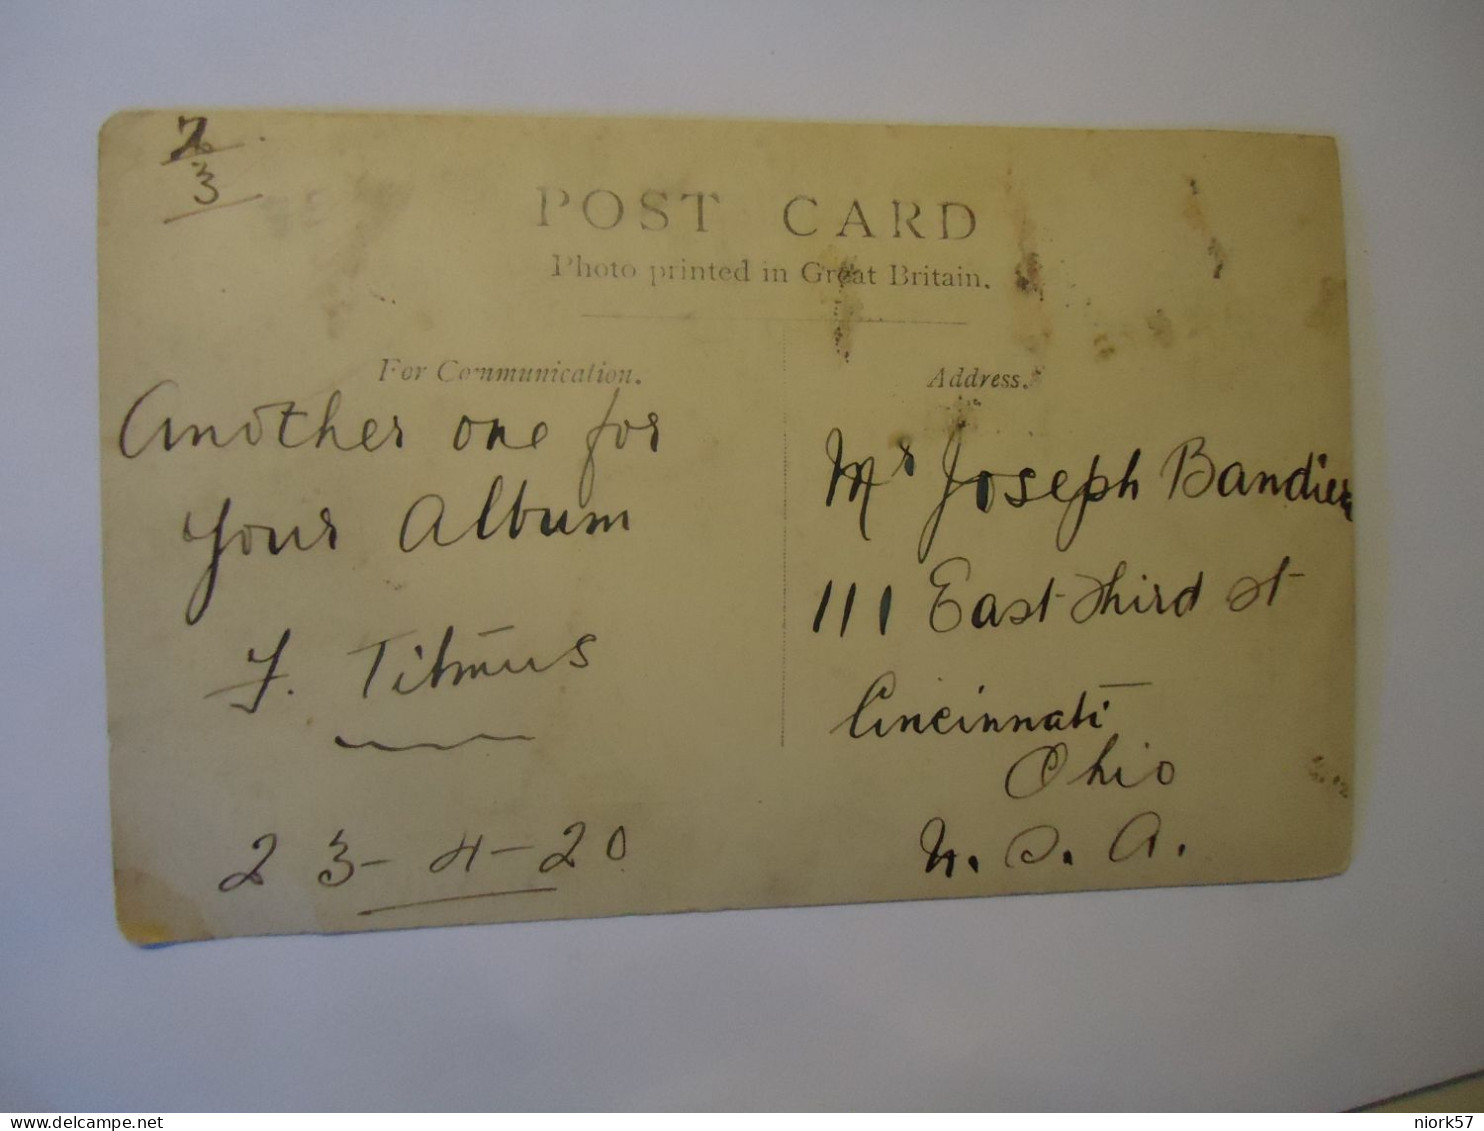 3
POST CARD
Photo printed in Great Britain.
For Communication.
Another one for
your album
F. Titmus
23-4-20
Address.
Mr Joseph Bandier
111 East Third St
Cincinnati
Ohio
U.S.A.
niork57